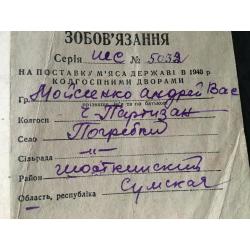 ЗОБОВ'ЯЗАННЯ
Серія ИС № 5032
НА ПОСТАВКУ М'ЯСА ДЕРЖАВІ В 1948 р
КОЛГОСПНИМИ ДВОРАМИ
Гр. Мойсеенко Андрей Вас
Колгосп Ч-Партизан
Село Погребки
Сільрада —"—
Район Шосткинский
Область, республіка Сумская